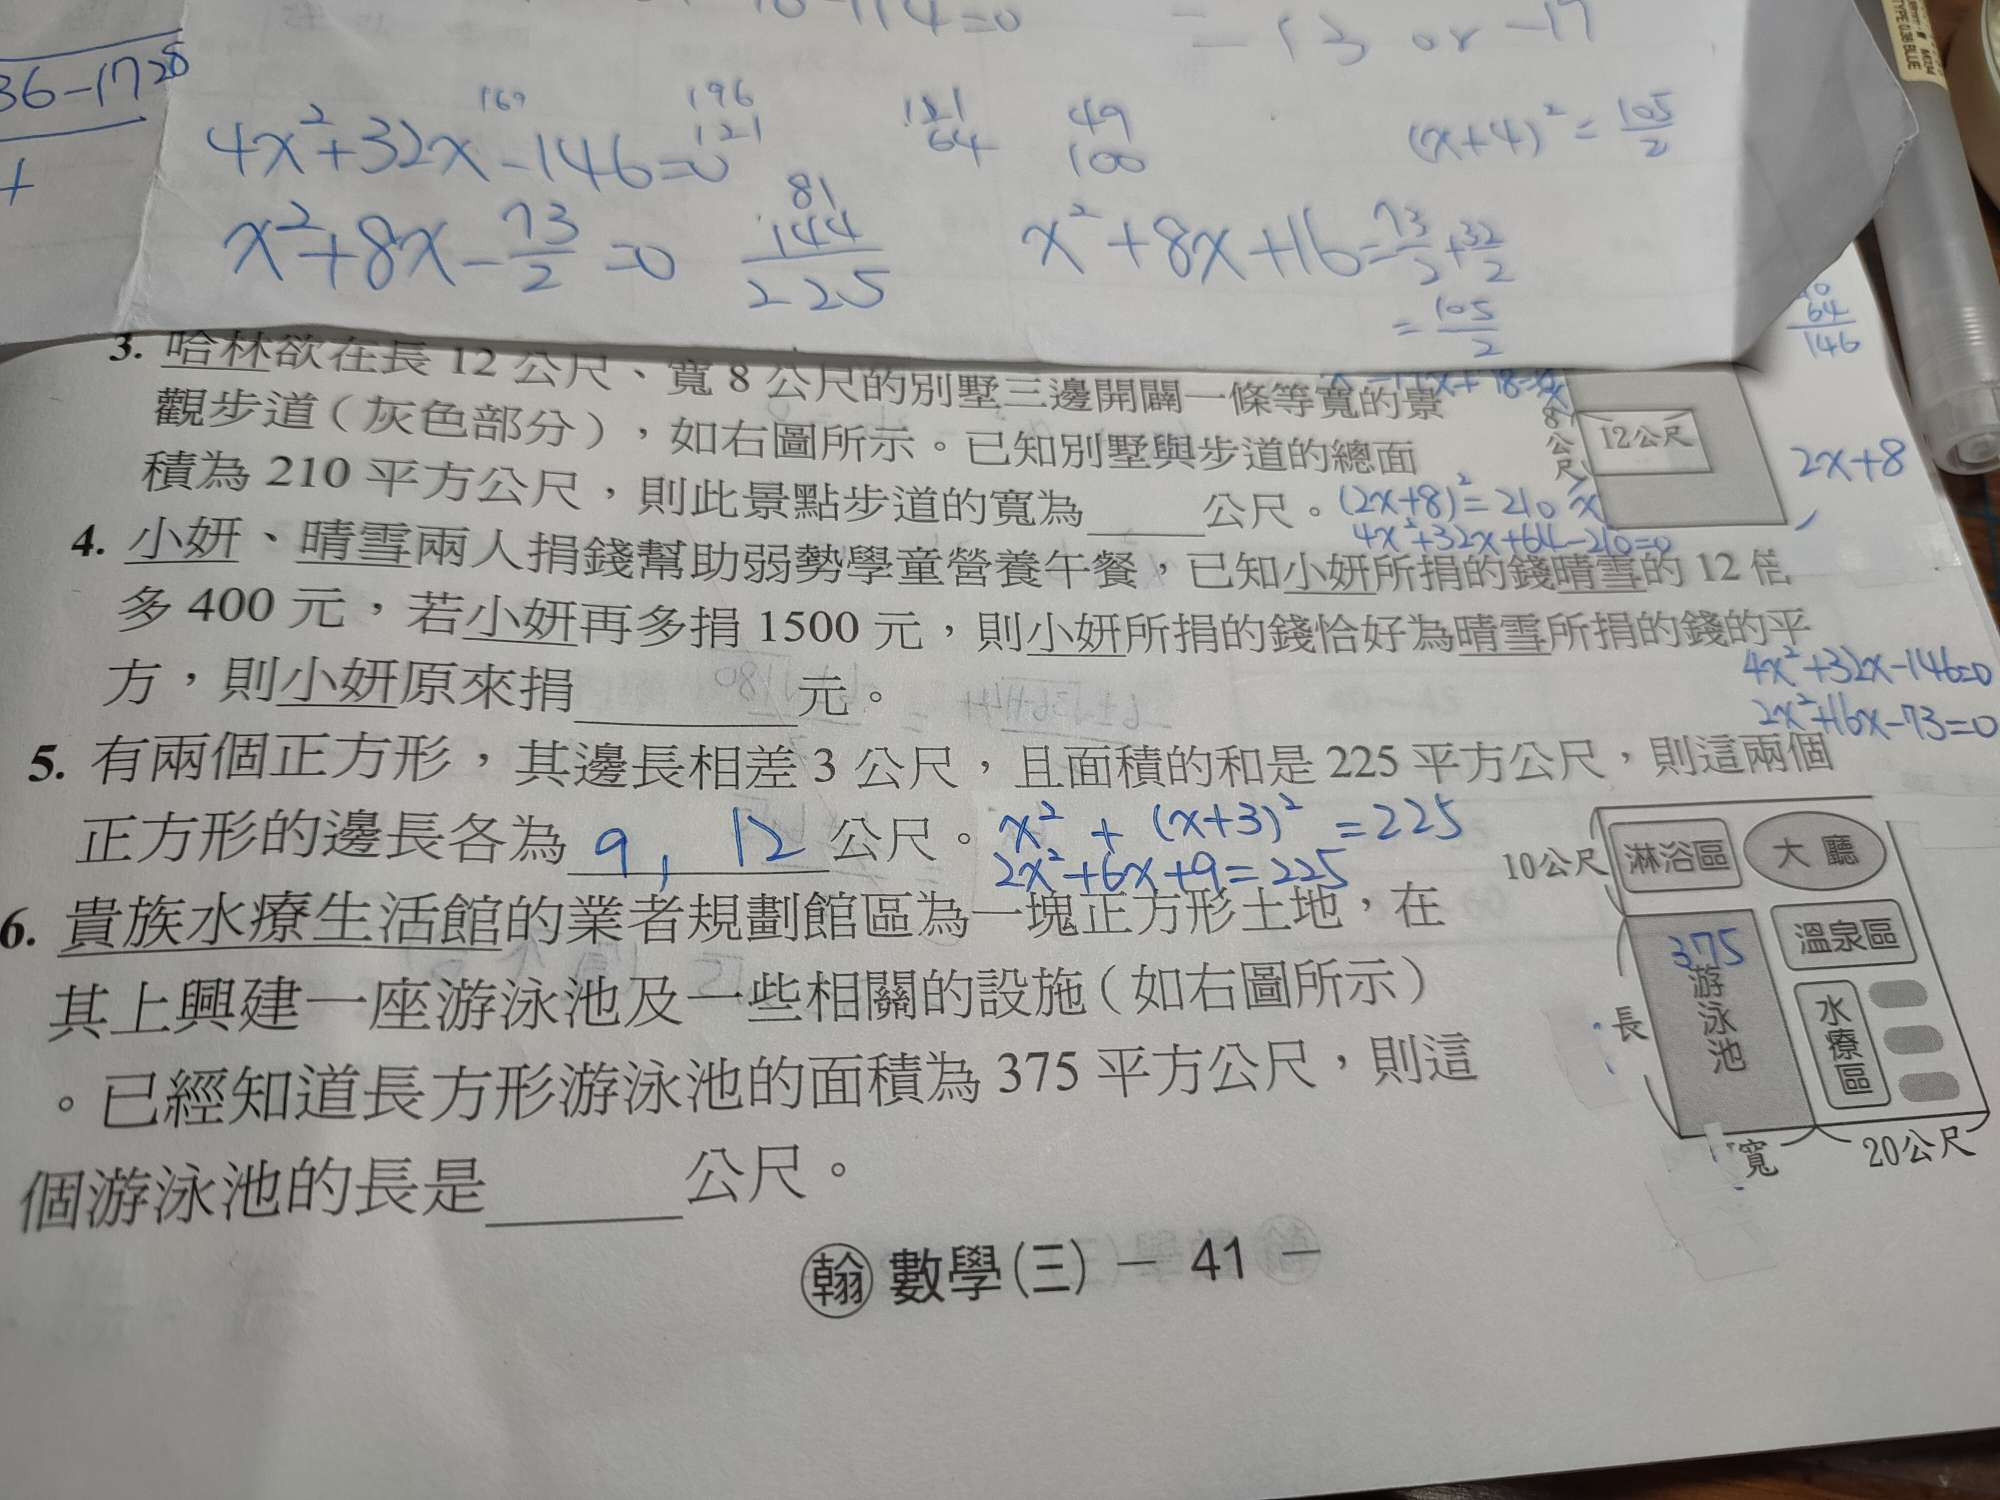 36-17
28
-114=0
= 13 or -17
169
196
121
4x²+32x-146=0
121
64
49
100
(x+4)²=105/2
81
144
225
x²+8x-73/2=0
x²+8x+16=73/2+32/2
=105/2
64
146
3. 哈林欲在長 12 公尺、寬 8 公尺的別墅三邊開闢一條等寬的景
觀步道(灰色部分),如右圖所示。已知別墅與步道的總面
積為 210 平方公尺,則此景點步道的寬為____公尺。
8公尺
12公尺
x
2x+8
(2x+8)²=210
4x²+32x+64-210=0
4. 小妍、晴雪兩人捐錢幫助弱勢學童營養午餐,已知小妍所捐的錢晴雪的 12 倍
多 400 元,若小妍再多捐 1500 元,則小妍所捐的錢恰好為晴雪所捐的錢的平
方,則小妍原來捐________元。
4x²+32x-146=0
2x²+16x-73=0
5. 有兩個正方形,其邊長相差 3 公尺,且面積的和是 225 平方公尺,則這兩個
正方形的邊長各為 9, 12 公尺。
x²+(x+3)²=225
2x²+6x+9=225
6. 貴族水療生活館的業者規劃館區為一塊正方形土地,在
其上興建一座游泳池及一些相關的設施(如右圖所示)
。已經知道長方形游泳池的面積為 375 平方公尺,則這
個游泳池的長是______公尺。
10公尺
淋浴區
大廳
溫泉區
375
游泳池
水療區
長
寬
20公尺
翰 數學(三) — 41 —